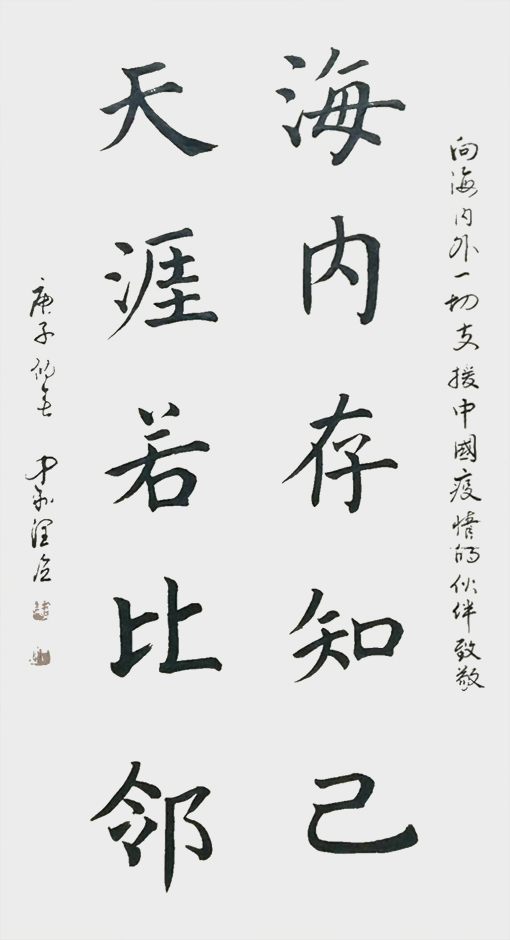 向海内外一切支援中國疫情的伙伴致敬
海内存知己
天涯若比邻
庚子初春